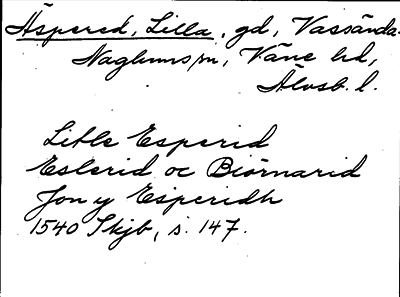 Äspered, Lilla, gd, Vassända-
Naglums sn, Väne hd,
Älvsb. l.
Litle Esperid
Eskerid oc Biörnarid
Jon y Esperidh
1540 Skjb, s. 147.